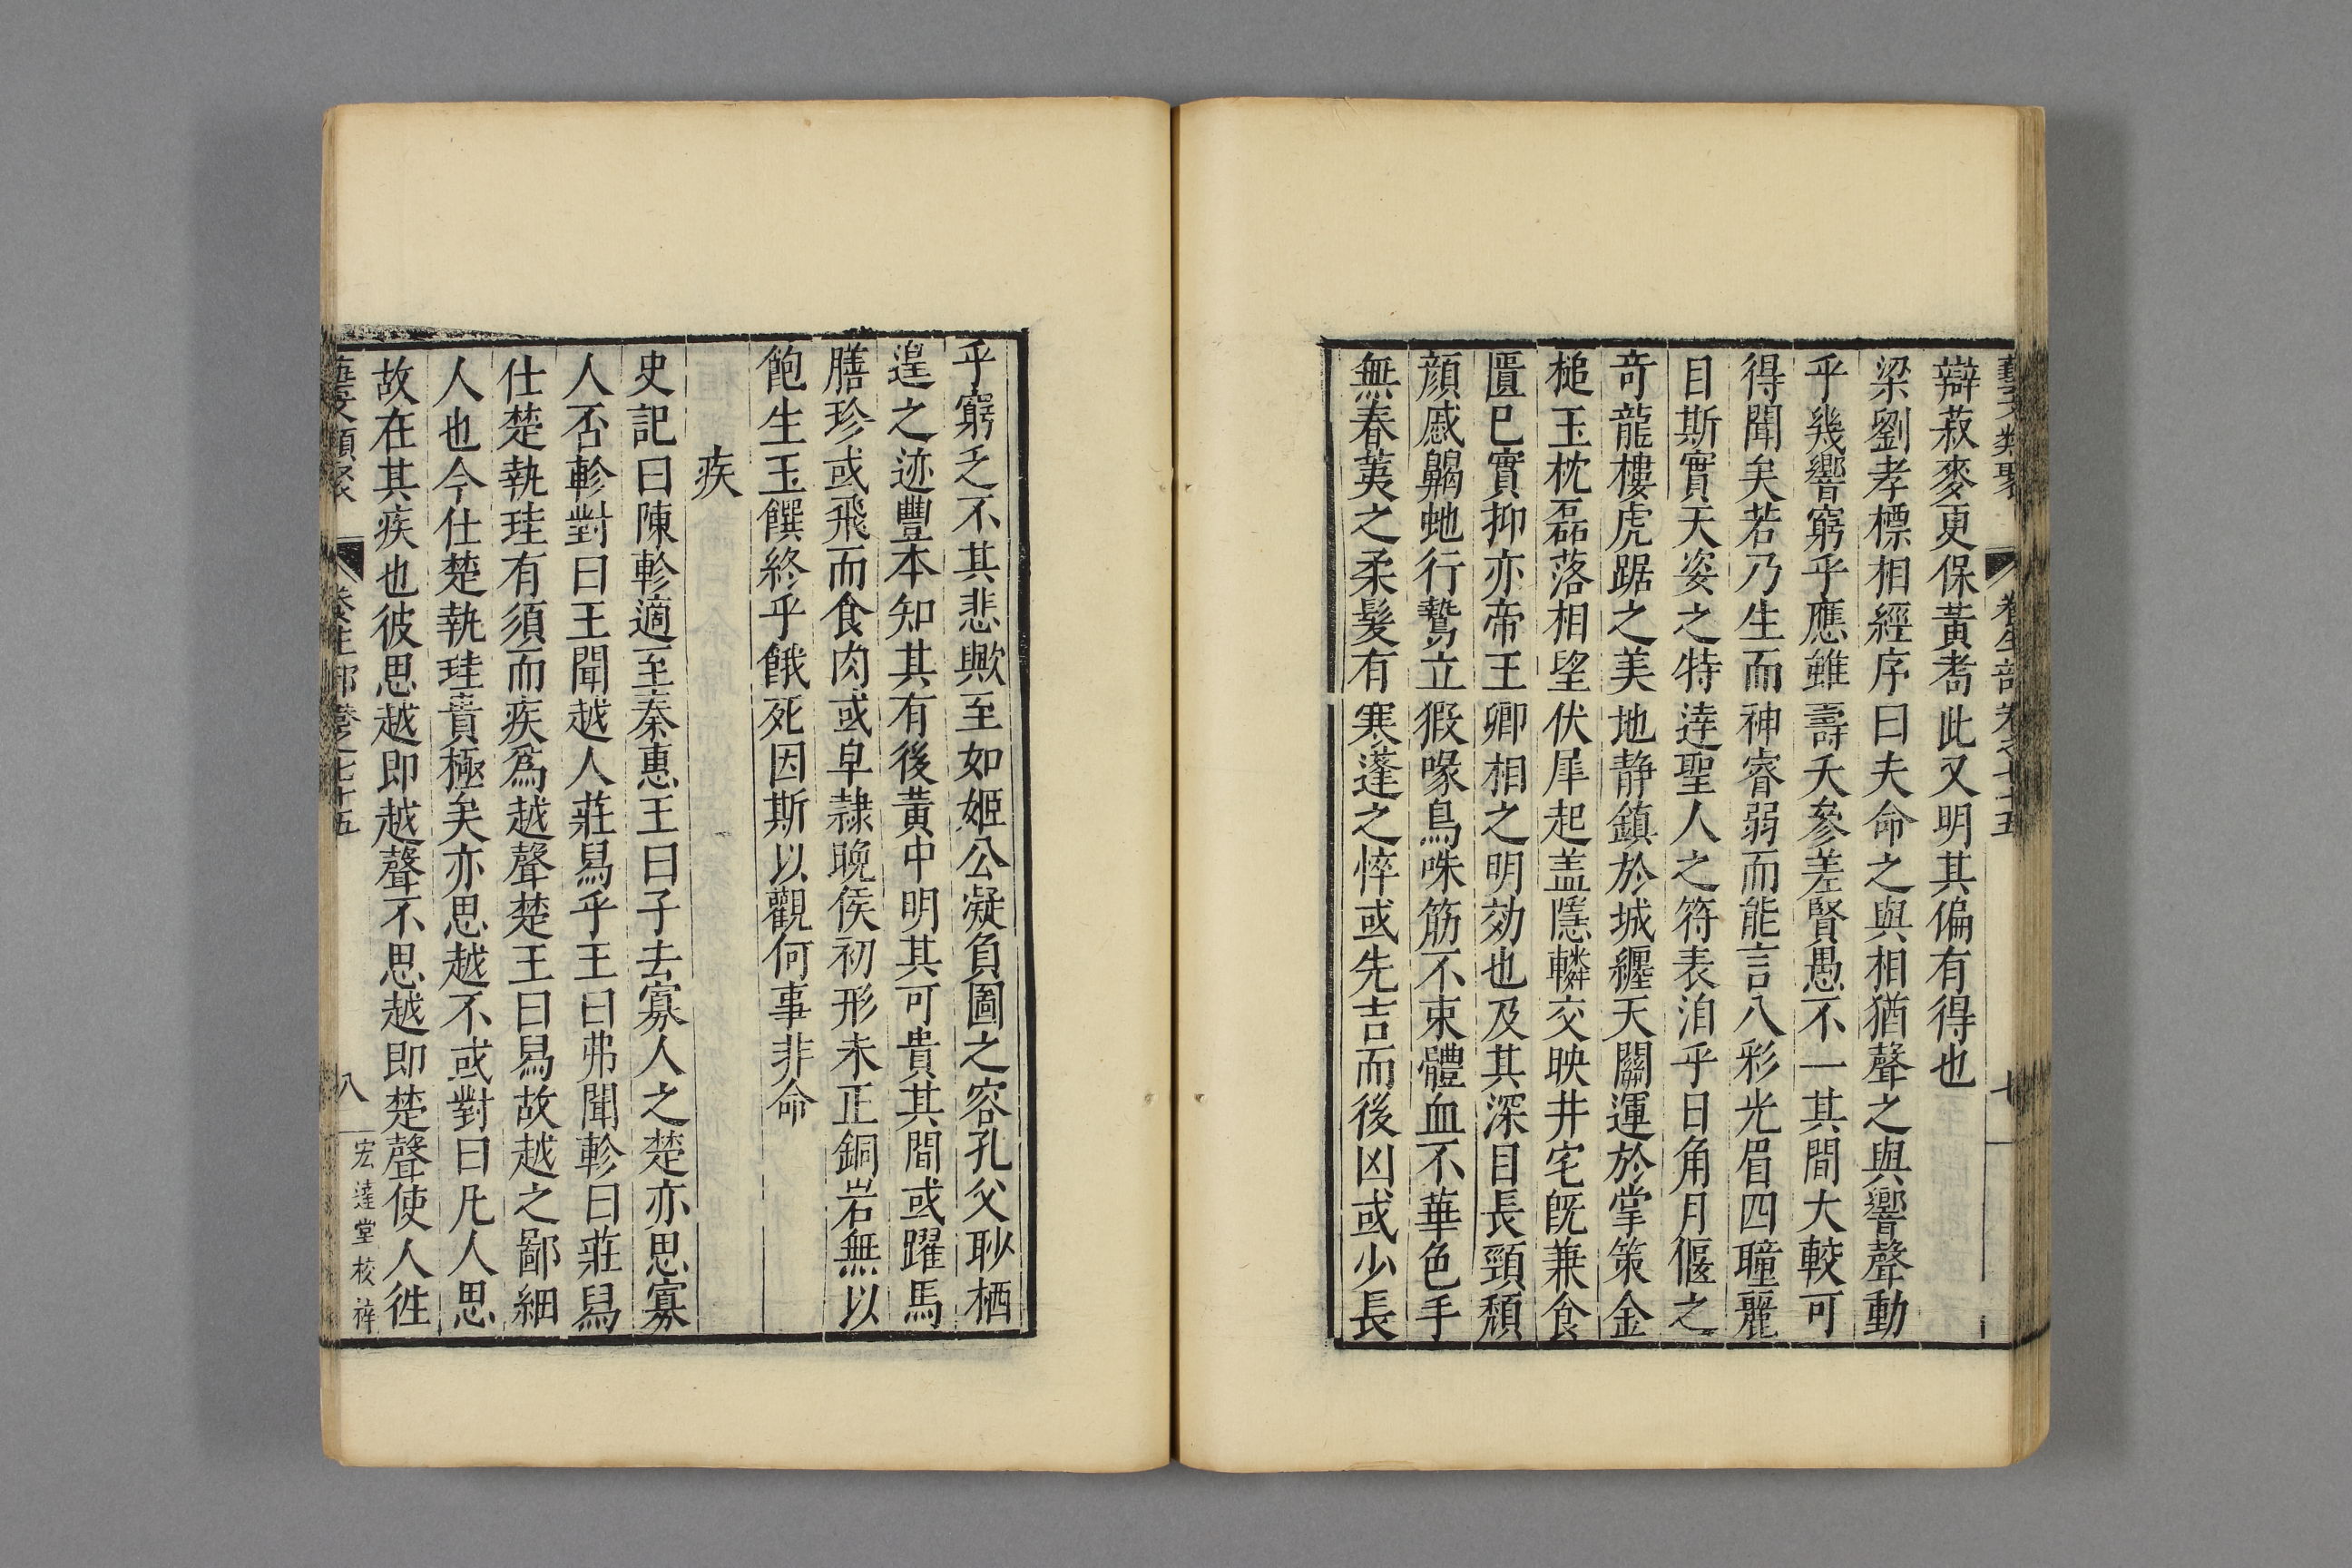 藝文類聚 養生部卷之七十五 七
辯菽麥更保黃耇此又明其偏有得也
梁劉孝標相經序曰夫命之與相猶聲之與響聲動
乎幾響窮乎應雖壽夭參差賢愚不一其間大較可
得聞矣若乃生而神睿弱而能言八彩光眉四瞳麗
目斯實天姿之特達聖人之符表洎乎日角月偃之
奇龍樓虎踞之美地静鎮於城纒天關運於掌策金
槌玉枕磊落相望伏犀起盖隱轔交映井宅旣兼食
匱巳實抑亦帝王卿相之明効也及其深目長頸頹
顏戚齃虵行鷙立猳喙鳥咮筋不束體血不華色手
無春荑之柔髮有寒蓬之悴或先吉而後凶或少長
乎窮乏不其悲歟至如姬公凝負圖之容孔父眇栖
遑之迹豐本知其有後黃中明其可貴其間或躍馬
膳珍或飛而食肉或皁隷晚侯初形未正銅岩無以
飽生玉饌終乎餓死因斯以觀何事非命
疾
史記曰陳軫適至秦惠王曰子去寡人之楚亦思寡
人否軫對曰王聞越人莊舄乎王曰弗聞軫曰莊舄
仕楚執珪有須而疾爲越聲楚王曰舄故越之鄙細
人也今仕楚執珪貴極矣亦思越不或對曰凡人思
故在其疾也彼思越即越聲不思越即楚聲使人徃
藝文類聚 養生部卷之七十五 八 宏達堂校梓